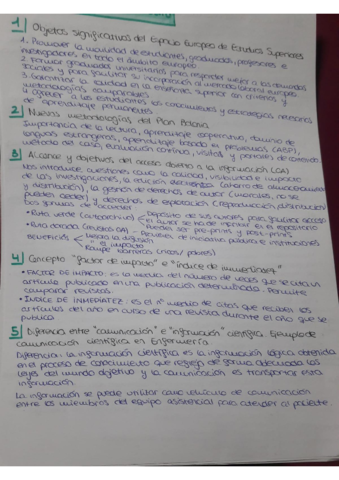 1 Objetos significativos del Espacio Europeo de Estudios Superiores
1. Promover la movilidad de estudiantes, graduados, profesores e
investigadores en todo el ámbito europeo
2. Formar graduados universitarios para responder mejor a las demandas
sociales y para facilitar su incorporación al mercado laboral europeo
3. Garantizar la calidad en la enseñanza superior con criterios y
metodologías comparables
4. Ofrecer a los estudiantes los conocimientos y estrategias necesarias
de aprendizaje permanentes
2 Nuevas metodologías del Plan Bolonia
Importancia de la lectura, aprendizaje cooperativo, dominio de
lenguas extranjeras, aprendizaje basado en problemas (ABP),
método del caso, evaluación continua, visitas y paneles de contenido
3 Alcance y objetivos del acceso abierto a la información (OA)
Nos introduce cuestiones como la calidad, visibilidad e impacto
de las investigaciones, la edición electrónica (ahorro de almacenamiento
y distribución), la gestión de derechos de autor (morales, no se
pueden ceder) y derechos de explotación (reproducción
• Ruta verde (autoarchivo) depósito de sus autores para
el autor se ha de en el repositorio
Puedes ser pre-prints y post-prints
• Ruta dorada (revistas OA) Revistas de iniciativa pública e instituciones
BENEFICIOS mejora la difusión
" el impacto
Rompe barreras (ricos/pobres)
4 Concepto "factor de impacto" e "índice de inmediatez"
• FACTOR DE IMPACTO: es la medida del número de veces que se cita un
artículo publicado en una publicación determinada. Permite
comparar revistas.
• INDICE DE INMEDIATEZ: es el nº medio de citas que reciben los
artículos del año en curso de una revista durante el año que se
publica
5 Diferencia entre "comunicación" e "información" científica. Ejemplo de
comunicación científica en Enfermería
Diferencia: la información científica es la información lógica obtenida
en el proceso de conocimiento que refleja de forma adecuada las
leyes del mundo objetivo y la comunicación es transportar esta
información.
La información se puede utilizar como vehículo de comunicación
entre los miembros del equipo asistencial para atender al paciente.